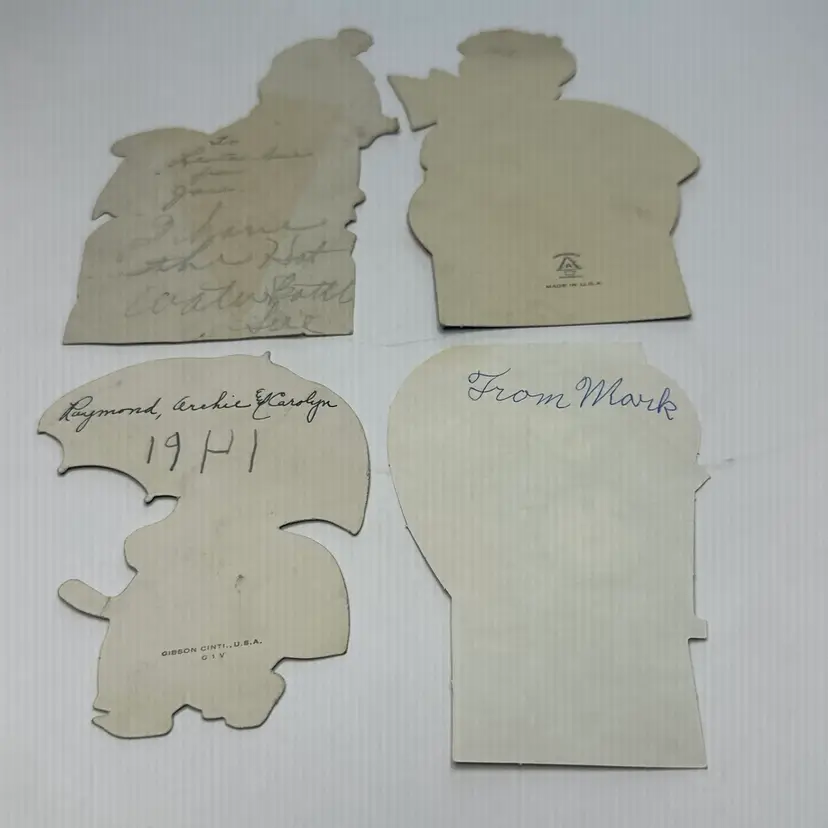 To
from
Jane
I have
the Hot
water Bottle
MADE IN U.S.A.
Raymond, Archie & Carolyn
1941
GIBSON CINTI., U.S.A.
G I V
From Mark